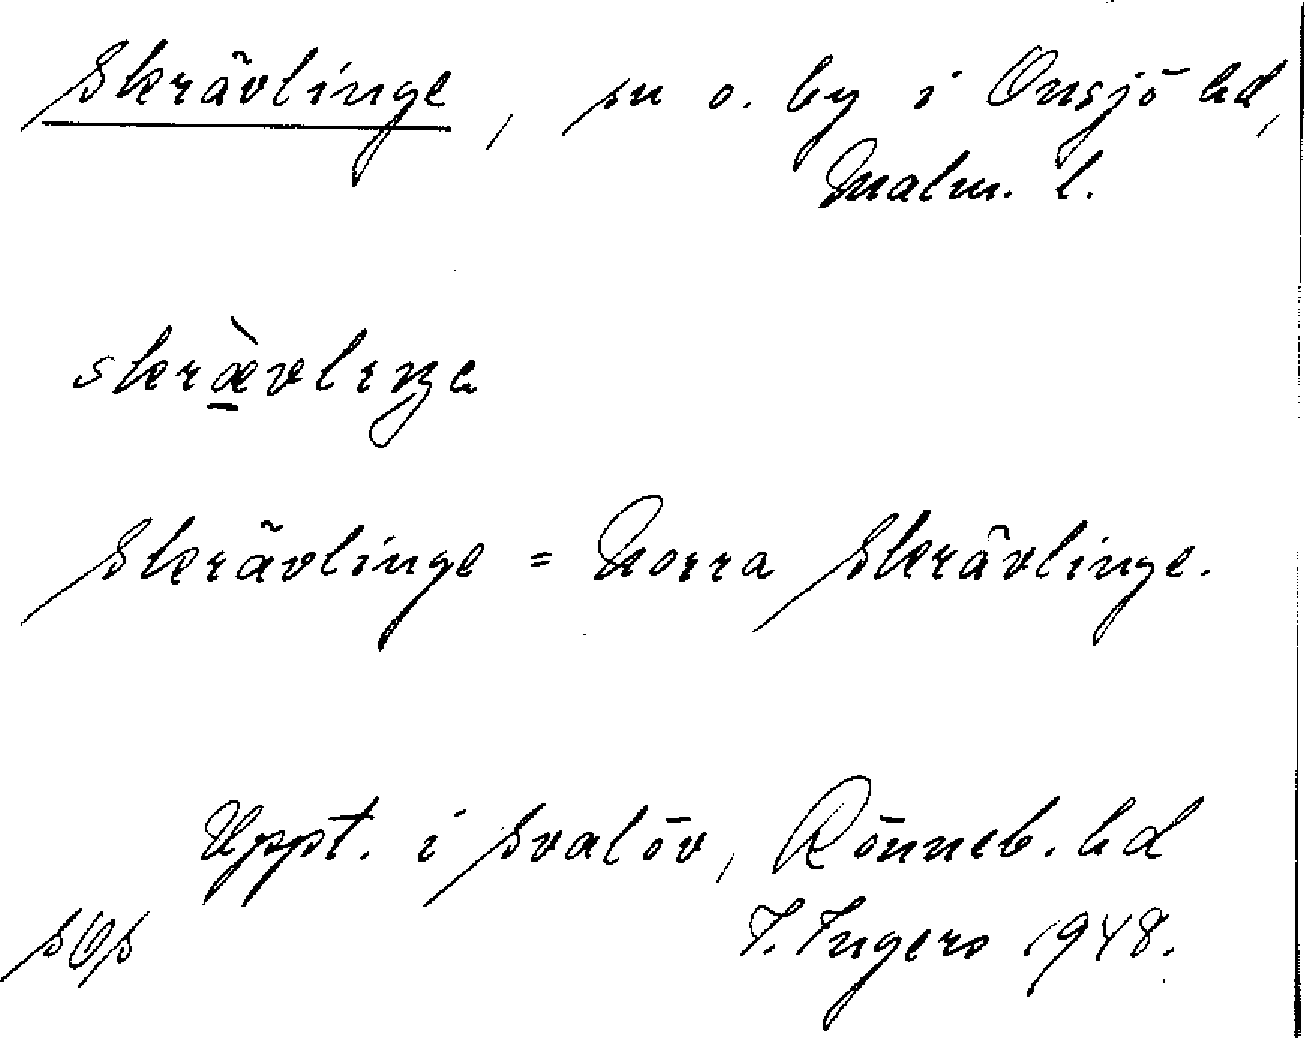 Skrävlinge, sn o. by i Onsjö hd,
Malm. l.
skræ̀vlıŋa
Skrävlinge = Norra Skrävlinge.
Uppt. i Svalöv, Rönneb. hd
I. Ingers 1948.